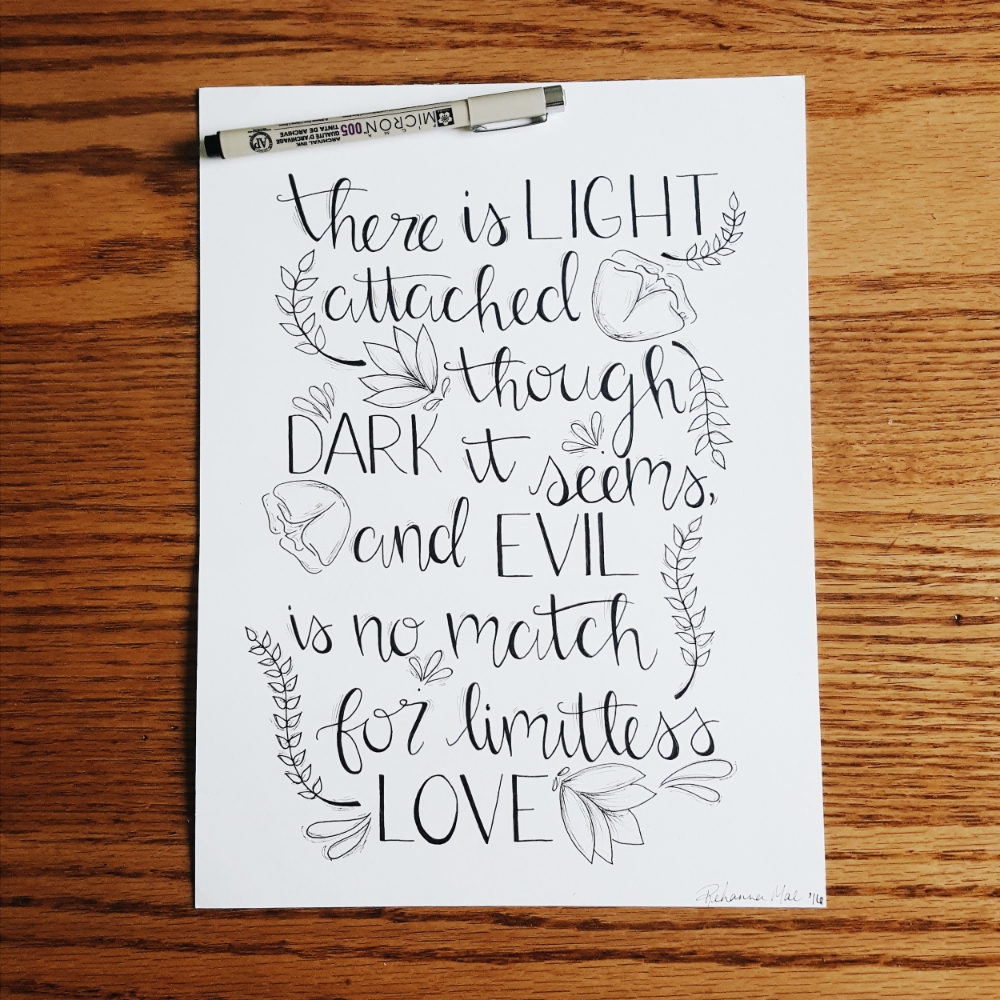 MICRON 005
ARCHIVAL INK
QUALITÉ D'ARCHIVAGE
TINTA DE ARCHIVE
AP
there is LIGHT
attached
though
DARK it seems,
and EVIL
is no match
for limitless
LOVE
Rehanna Mae '16